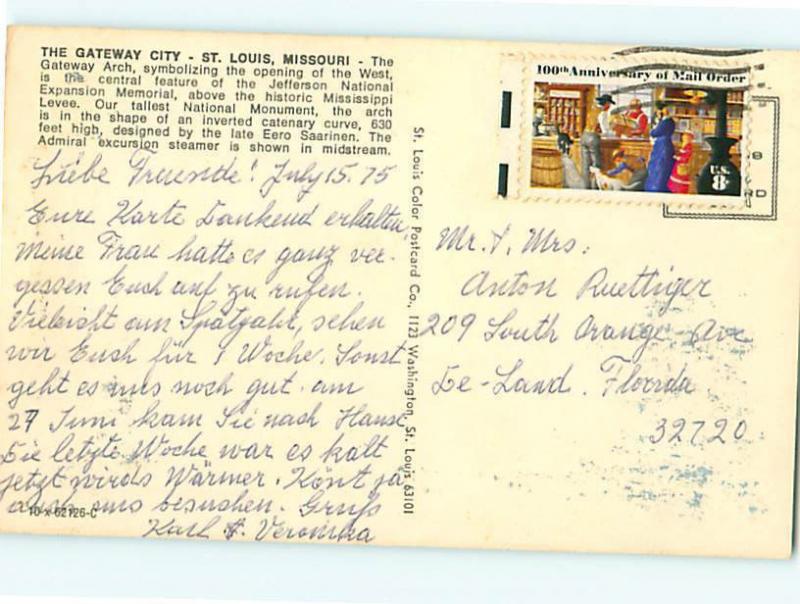 THE GATEWAY CITY - ST. LOUIS, MISSOURI - The
Gateway Arch, symbolizing the opening of the West,
is the central feature of the Jefferson National
Expansion Memorial, above the historic Mississippi
Levee. Our tallest National Monument, the arch
is in the shape of an inverted catenary curve, 630
feet high, designed by the late Eero Saarinen. The
Admiral excursion steamer is shown in midstream.
Liebe Freunde! July 15. 75
Eure Karte Dankend erhalten,
meine Frau hatte es ganz ver-
gessen Euch auf zu rufen.
Vieleicht am Spätjahr, sehen
wir Euch für 1 Woche. Sonst
geht es uns noch gut. am
27 Juni kam Sie nach Hause
Die letzte Woche war es kalt
jetzt wirds Wärmer. Könt ja
auch uns besuchen. Gruß
Karl & Veronika
10-X-62126-C
St. Louis Color Postcard Co., 1123 Washington, St. Louis 63101
100th Anniversary of Mail Order
U.S.
8c
Mr. & Mrs:
Anton Ruettiger
209 South Orange Ave
De-Land. Floorida
32720